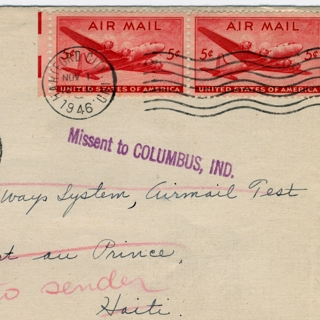 AIR MAIL AIR MAIL
5¢ 5¢ 5¢ 5¢
UNITED STATES OF AMERICA UNITED STATES OF AMERICA
NOV
1946
Missent to COLUMBUS, IND.
ways System, Airmail Test
au Prince,
sender
Haiti.